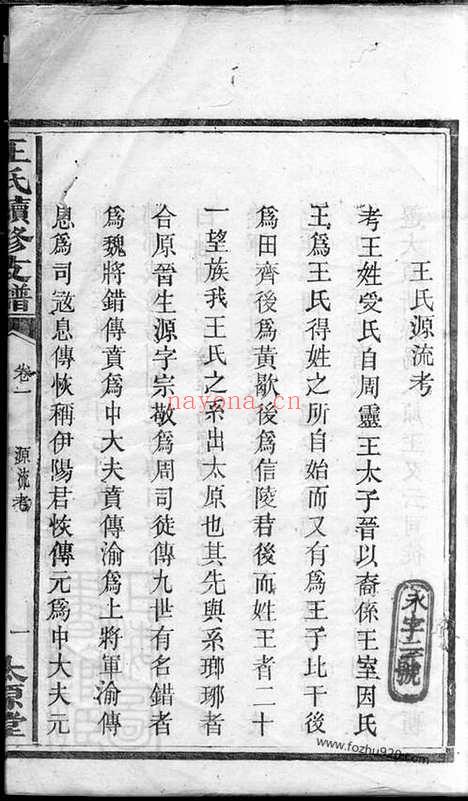 王氏源流考
考王姓受氏自周靈王太子晉以裔係王室因氏
王爲王氏得姓之所自始而又有爲王子比干後
爲田齊後爲黃歇後爲信陵君後而姓王者二十
一望族我王氏之系出太原也其先與系瑯琊者
合原晉生源字宗敬爲周司徒傳九世有名錯者
爲魏將錯傳賁爲中大夫賁傳渝爲上將軍渝傳
息爲司寇息傳恢稱伊陽君恢傳元爲中大夫元
王氏續修支譜
卷一
源流考
一
太原堂
永字三號
nayona.cn
www.fozhu920.com